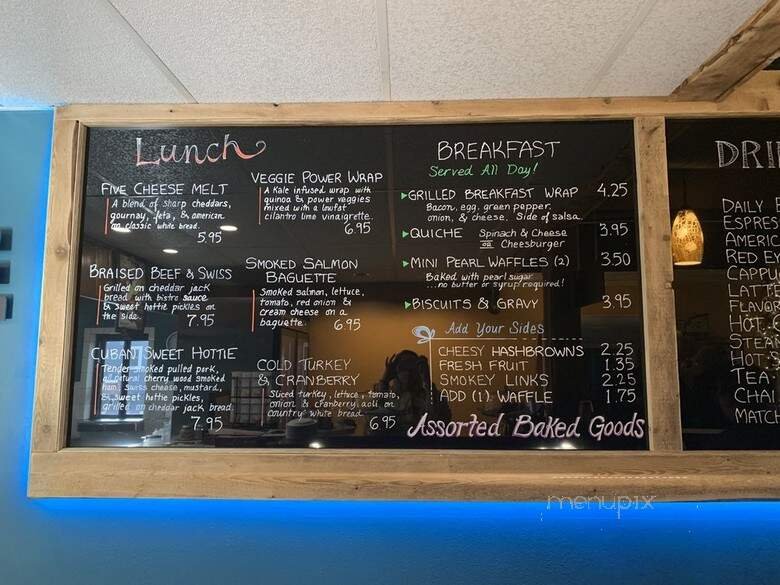 Lunch
FIVE CHEESE MELT
A blend of sharp cheddars,
gournay, feta, & american
on classic white bread.
5.95
BRAISED BEEF & SWISS
Grilled on cheddar jack
bread with bistro sauce
& sweet hottie pickles on
the side.
7.95
CUBAN SWEET HOTTIE
Tender smoked pulled pork,
all natural cherry wood smoked
ham, swiss cheese, mustard,
& sweet hottie pickles,
grilled on cheddar jack bread
7.95
VEGGIE POWER WRAP
A Kale infused wrap with
quinoa & power veggies
mixed with a lowfat
cilantro lime vinaigrette.
6.95
SMOKED SALMON
BAGUETTE
Smoked salmon, lettuce,
tomato, red onion &
cream cheese on a
baguette.
6.95
COLD TURKEY
& CRANBERRY
Sliced turkey, lettuce, tomato,
onion & cranberry aoli on
country white bread.
6.95
BREAKFAST
Served All Day!
GRILLED BREAKFAST WRAP 4.25
Bacon, egg, green pepper,
onion, & cheese. Side of salsa
QUICHE Spinach & Cheese 3.95
or Cheesburger
MINI PEARL WAFFLES (2) 3.50
Baked with pearl sugar
...no butter or syrup required!
BISCUITS & GRAVY 3.95
Add Your Sides
CHEESY HASHBROWNS 2.25
FRESH FRUIT 1.35
SMOKEY LINKS 2.25
ADD (1) WAFFLE 1.75
Assorted Baked Goods
DRI
DAILY
ESPRES
AMERIC
RED EY
CAPPU
LATTE
FLAVOR
HOT
STEAM
HOT
TEA,
CHAI
MATCH
menupix